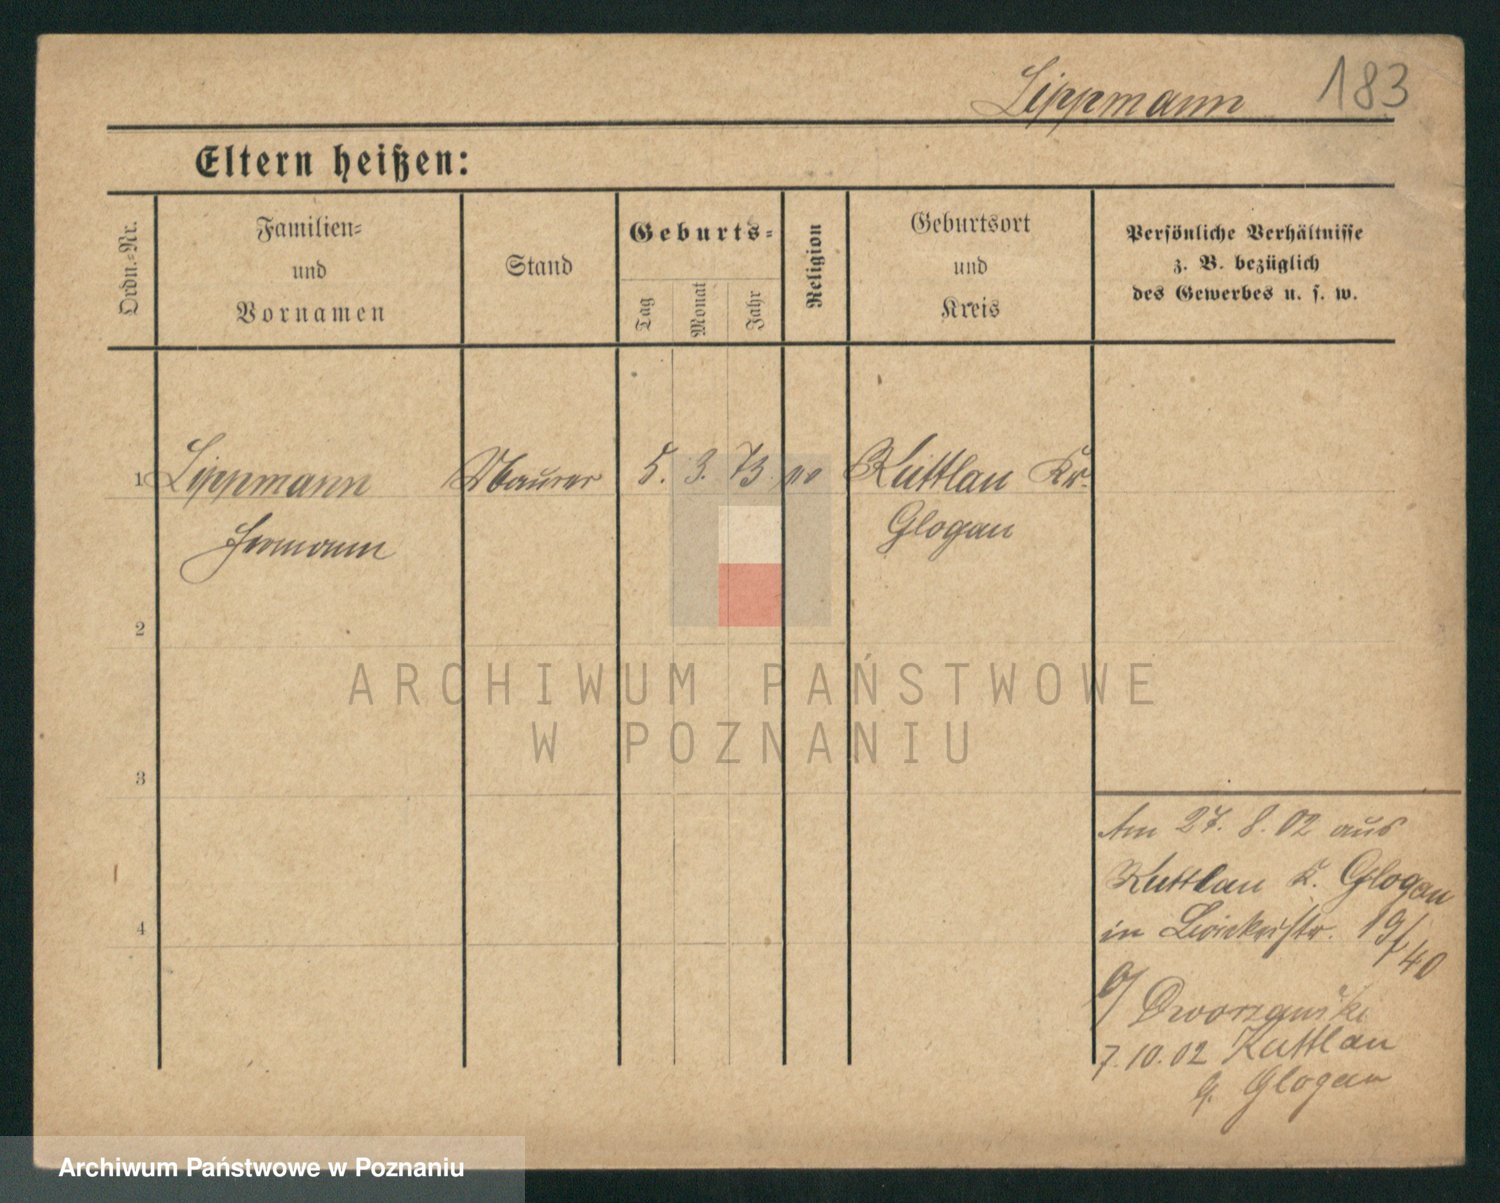 Lippmann 183
Eltern heißen:
Ordn.-Nr.
Familien-
und
Vornamen
Stand
Geburts-
Tag
Monat
Jahr
Religion
Geburtsort
und
Kreis
Persönliche Verhältnisse
z. B. bezüglich
des Gewerbes u. s. w.
1 Lippmann Maurer 5. 3. 73 Kuttlau Kr.
Hermann Glogau
2
3
4
Am 27. 8. 02 aus
Kuttlau K. Glogau
in 19/ 40
7.10.02 Kuttlau
Glogau
ARCHIWUM PAŃSTWOWE
W POZNANIU
Archiwum Państwowe w Poznaniu